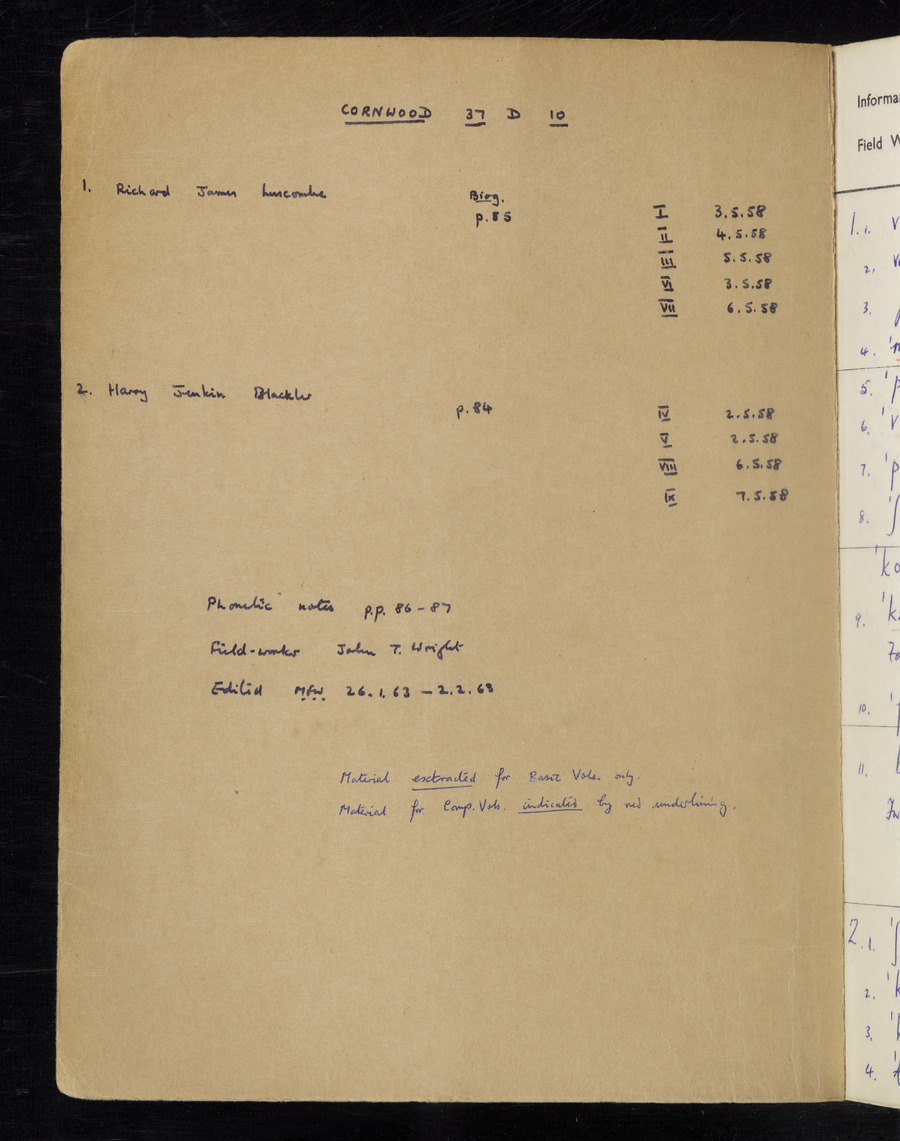 CORNWOOD 37 D 10
1. Richard James Luscombe Biog.
p.85
I 3.5.58
II 4.5.58
III 5.5.58
VI 3.5.58
VII 6.5.58
2. Harry Jenkin Blackler
p.84
IV 2.5.58
V 2.5.58
VIII 6.5.58
IX 7.5.58
Phonetic notes p.p. 86-87
Field-worker John T. Wright
Edited MFW 26.1.63 - 2.2.63
Material extracted for Basic Vols. only.
Material for Comp. Vols. indicated by red underlining.
Informa
Field W
1. 1. v
2. v
3.
4. 'n
5. 'p
6. 'v
7. 'p
8. 'ʃ
'k
9. 'k
10. '
11.
2. 1. 'ʃ
2. 'k
3. '
4. '